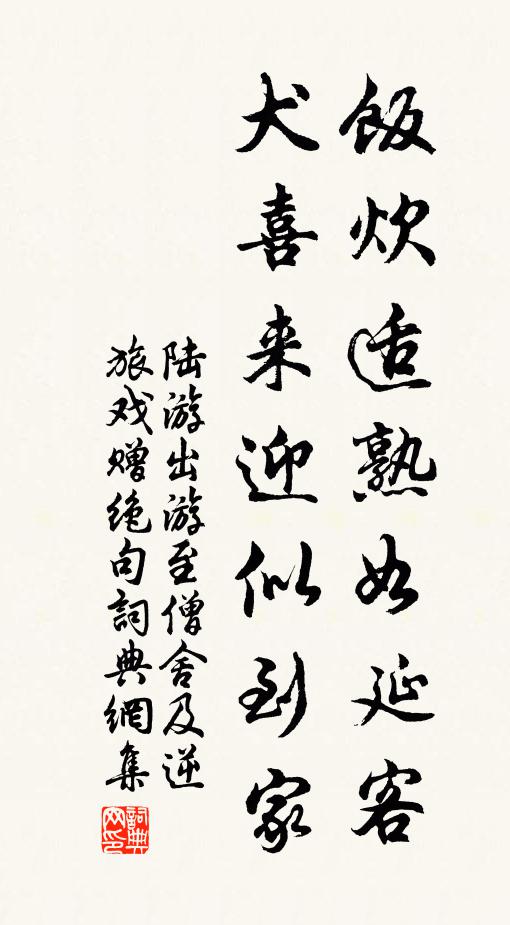 飯炊适熟如延客
犬喜来迎似到家
陆游出游至僧舍及逆
旅戏赠绝句詞典網集
詞典